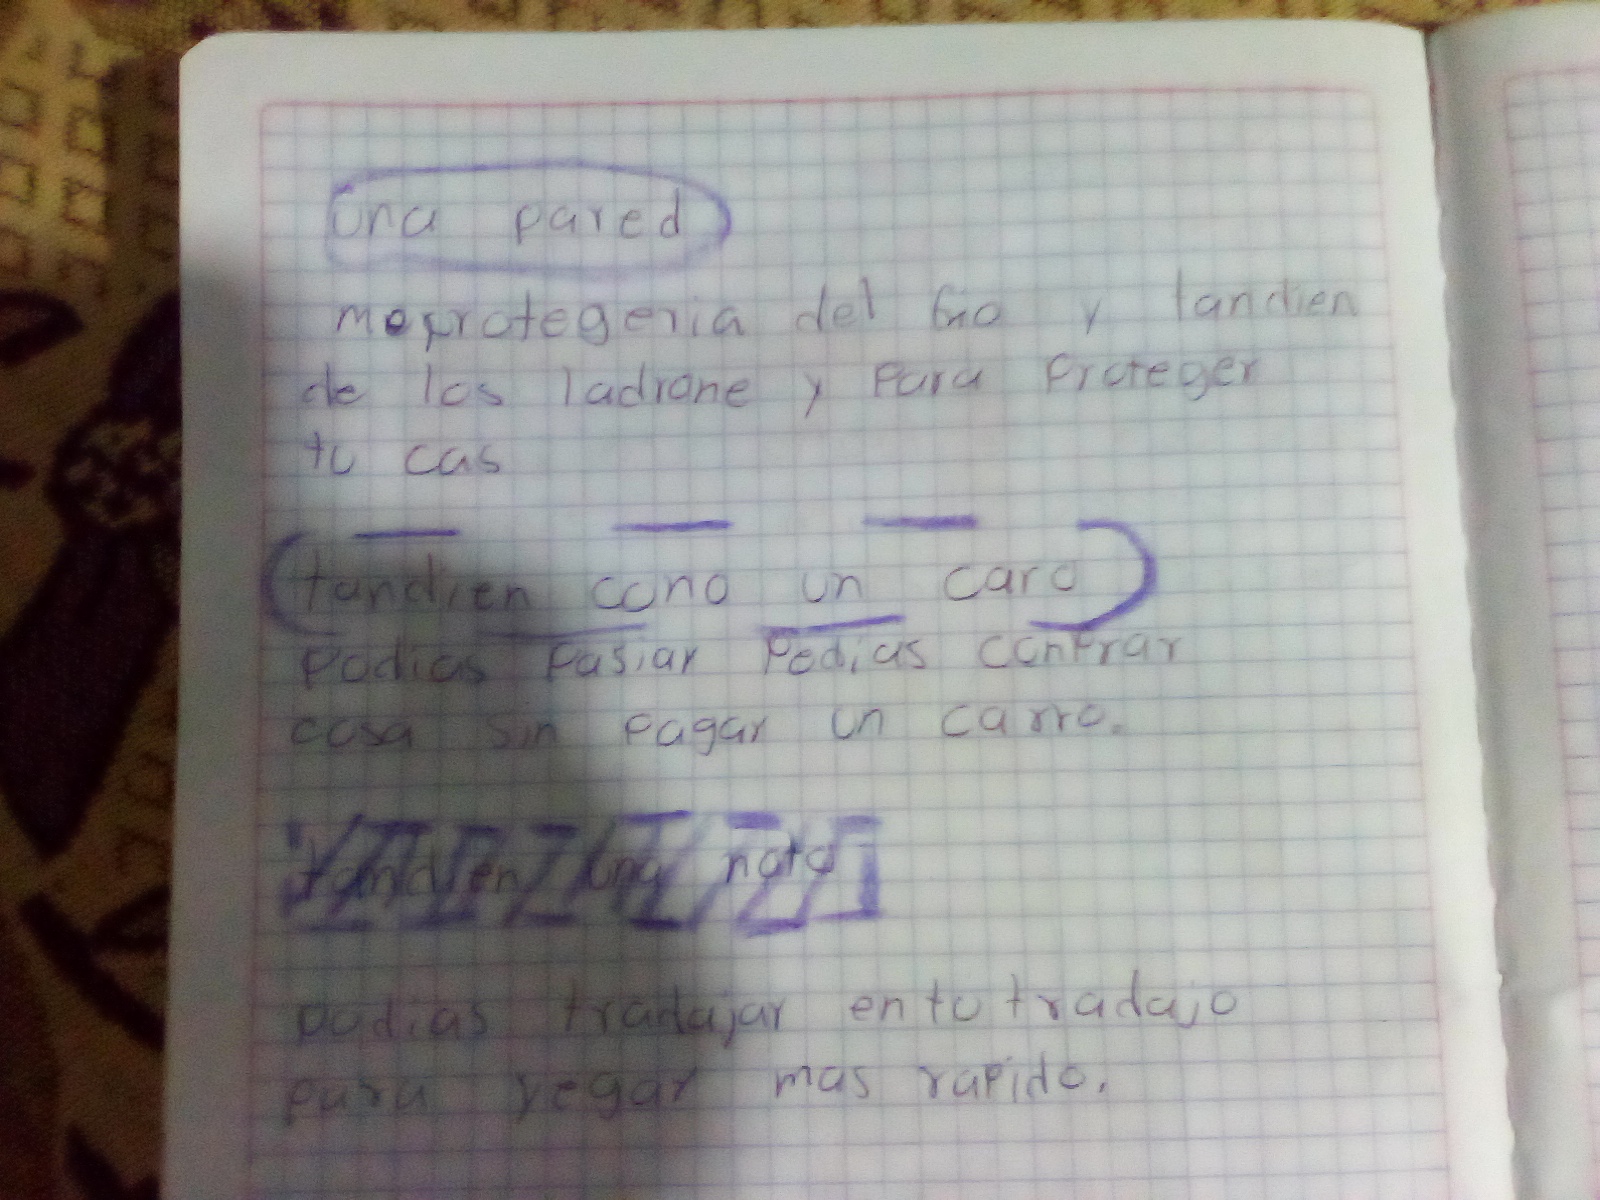 una pared
meprotegeria del frio y tandien
de los ladrone y para proteger
tu cas
tandien cono un caro
podias pasiar Pedias conprar
cosa sin pagar un carro.
tandien una noto
podias tradajar en tu tradajo
para yegar mas rapido.